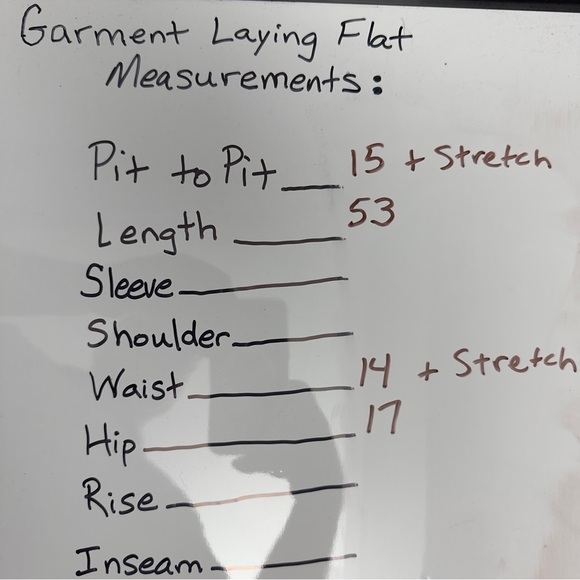 Garment Laying Flat
Measurements:
Pit to Pit 15 + Stretch
Length 53
Sleeve
Shoulder
Waist 14 + Stretch
Hip 17
Rise
Inseam